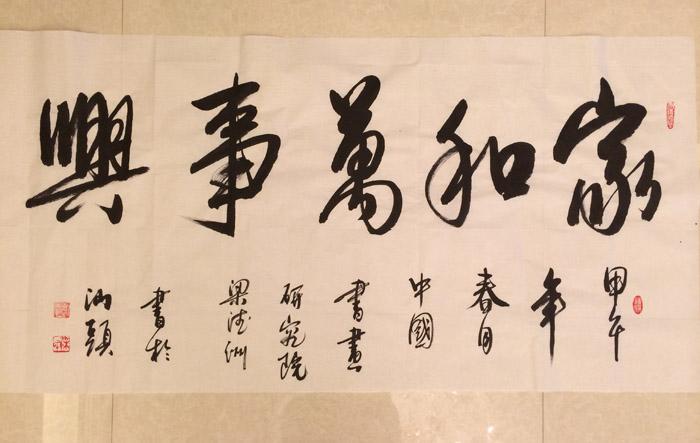 家和萬事興
甲午
年
春月
中國
書畫
研究院
梁波洲
書於
汕頭